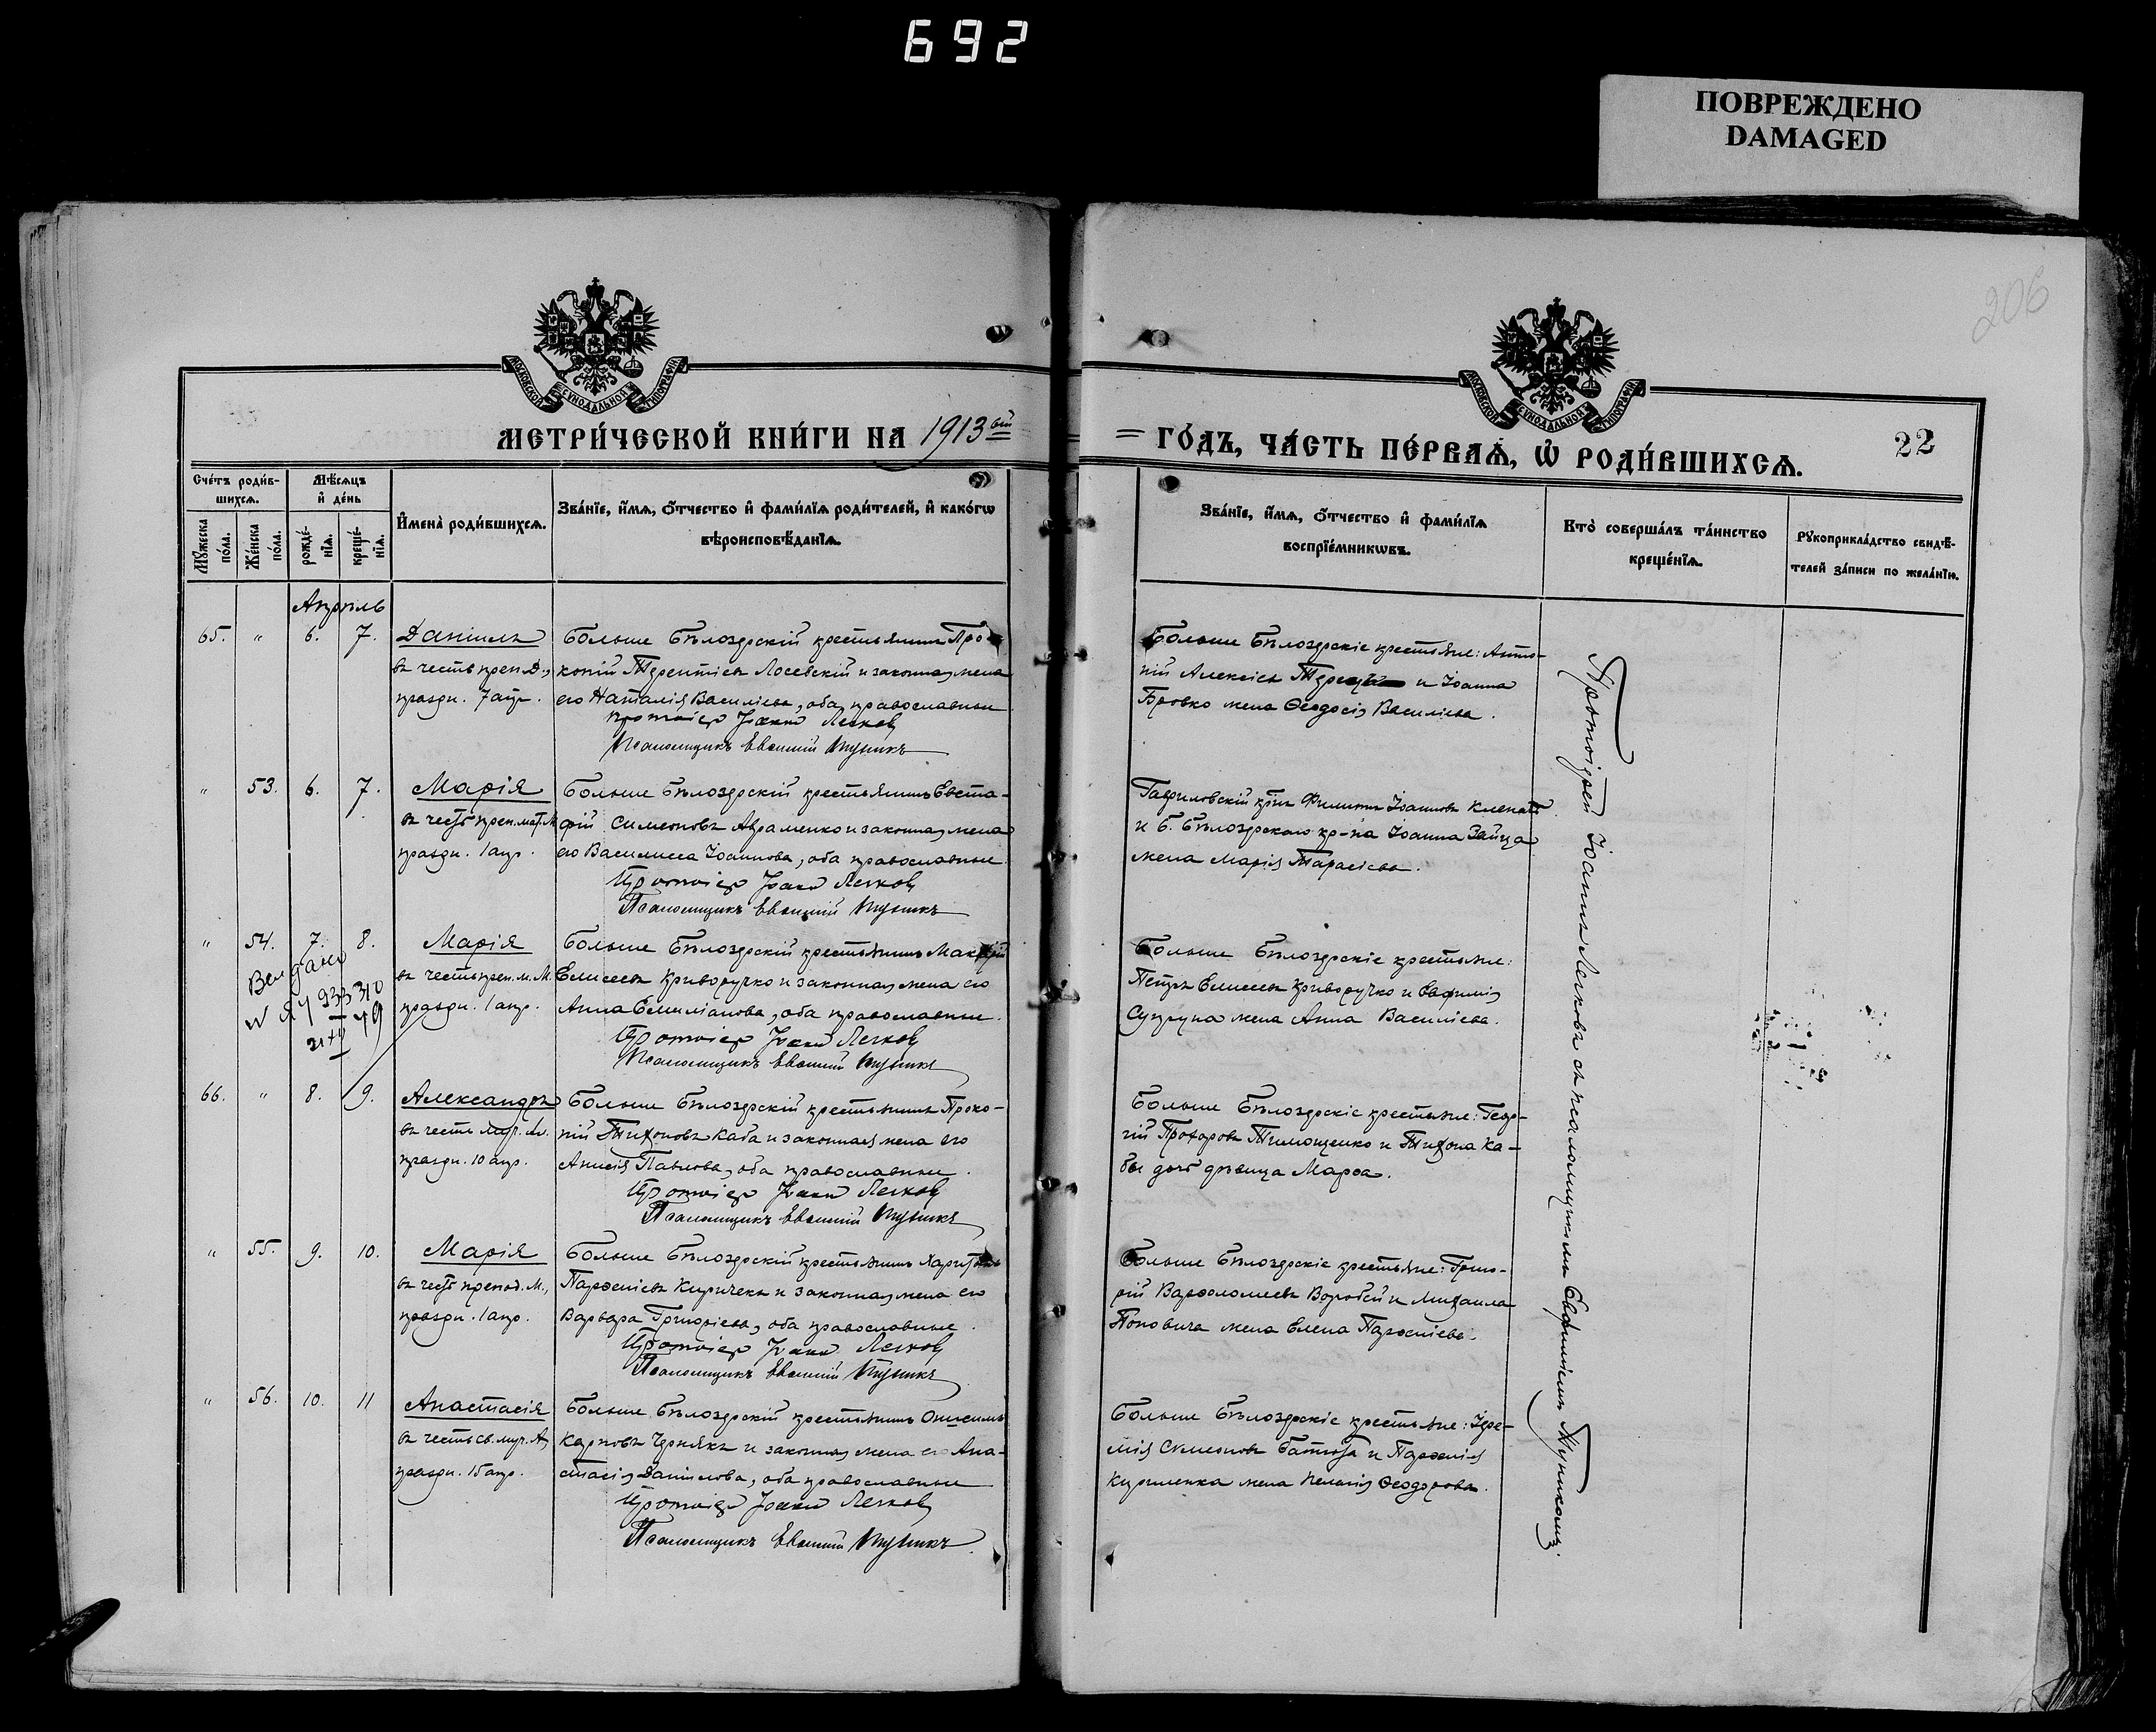 692
ПОВРЕЖДЕНО
DAMAGED
206
МОСКОВСКОЙ СѴНОДАЛЬНОЙ ТИПОГРАФІИ
МОСКОВСКОЙ СѴНОДАЛЬНОЙ ТИПОГРАФІИ
МЕТРИ́ЧЕСКОЙ КНИ́ГИ НА 1913 ый
= ГО́ДЪ, ЧА́СТЬ ПЕ́РВАѦ, Ѽ РОДИ́ВШИХСѦ.
22
Сче́тъ роди́в-
шихсѧ.
Мѣ́сѧцъ
и҆ де́нь
Мꙋ́жеска
по́ла.
Же́нска
по́ла.
рожде́-
нїѧ.
креще́-
нїѧ.
И҆мена̀ роди́вшихсѧ.
Зва́нїе, и҆́мѧ, ѻ҆́тчество и҆ фами́лїѧ роди́телей, и҆ како́гѡ
вѣроисповѣ́данїѧ.
Зва́нїе, и҆́мѧ, ѻ҆́тчество и҆ фами́лїѧ
воспрїе́мникѡвъ.
Кто̀ соверша́лъ та́инство
креще́нїѧ.
Рꙋкоприкла́дство свидѣ́-
телей за́писи по жела́нїю.
Апрѣль
65. " 6. 7. Даніилъ
въ честь преп. Д.,
праздн. 7 апр.
Больше Бѣлозерскій крестьянинъ Про-
копій Терентіевъ Лосевскій и законная жена
его Наталія Васильева, оба православные
Протоіер Іоанн Легков
Псаломщикъ Евфимій Пуникъ
Больше Бѣлозерскіе крестьяне: Анто-
ній Алексіевъ и Іоанна
Бровко жена Ѳеодосія Василіева.
" 53. 6. 7. Марія
въ честь преп. мат. М
праздн. 1 апр.
Больше Бѣлозерскій крестьянинъ Евста-
фій Симеоновъ Авраменко и законная жена
его Василисса Іоаннова, оба православные
Протоіер Іоанн Легков
Псаломщикъ Евфимій Пуникъ
Гавриловскій кр-нъ Филиппъ Іоанновъ
и Б. Бѣлозерскаго кр-на Іоанна Зайца
жена Марія Тарасіева.
" 54. 7. 8. Марія
въ честь преп. м. М.
праздн. 1 апр.
Больше Бѣлозерскій крестьянинъ Макарій
Елисеевъ Криворучко и законная жена его
Анна Емиліанова, оба православные.
Протоіер Іоанн Легков
Псаломщикъ Евфимій Пуникъ
Больше Бѣлозерскіе крестьяне:
Петръ Елисеевъ Криворучко и Евфимія
Супруна жена Анна Василіева.
66. " 8. 9. Александръ
въ честь муч. Ал.
праздн. 10 апр.
Больше Бѣлозерскій крестьянинъ Проко-
пій Тихоновъ Каба и законная жена его
Анисія Павлова, оба православные.
Протоіер Іоанн Легков
Псаломщикъ Евфимій Пуникъ
Больше Бѣлозерскіе крестьяне: Геор-
гій Прохоровъ Тимощенко и Тихона Ка-
бы дочь дѣвица Марѳа.
" 55. 9. 10. Марія
въ честь препод. М.,
праздн. 1 апр.
Больше Бѣлозерскій крестьянинъ Харитонъ
Парѳеніевъ Киричекъ и законная жена его
Варвара Григоріева, оба православные.
Протоіер Іоанн Легков
Псаломщикъ Евфимій Пуникъ
Больше Бѣлозерскіе крестьяне: Григо-
рій Варѳоломеевъ Воробей и Михаила
Поповича жена Елена Парѳеніева.
" 56. 10. 11 Анастасія
въ честь св. муч. А,
праздн. 15 апр.
Больше Бѣлозерскій крестьянинъ Онисимъ
Карповъ Чернякъ и законная жена его Ана-
стасія Даніилова, оба православные
Протоіер Іоанн Легков
Псаломщикъ Евфимій Пуникъ
Больше Бѣлозерскіе крестьяне: Іере-
мія Симеоновъ и Парѳенія
Кириленка жена Пелагія Ѳеодорова.
Протоіерей Іоаннъ Легковъ съ псаломщикомъ Евфиміемъ Пуникомъ.